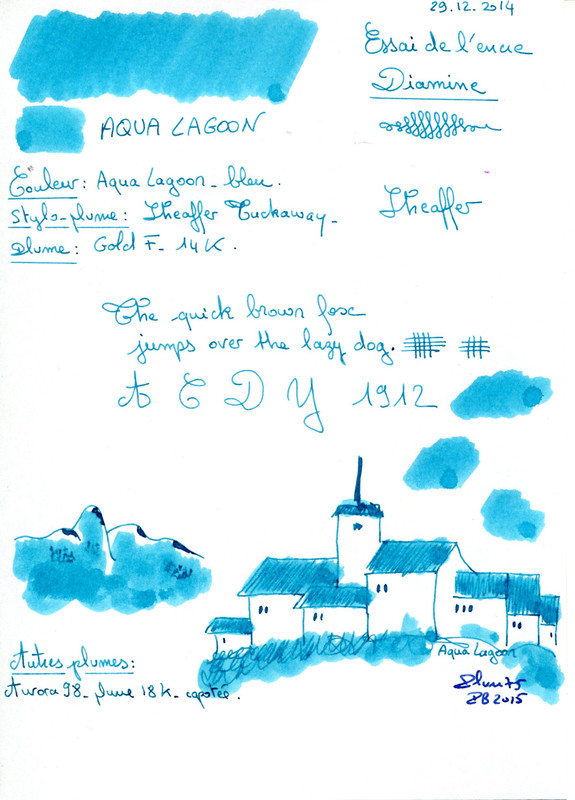 29.12.2014
Essai de l'encre
Diamine
AQUA LAGOON
Couleur: Aqua Lagoon_ bleu.
Stylo-plume: Sheaffer Tuckaway_
Plume: Gold F_ 14K.
Sheaffer
The quick brown fox
jumps over the lazy dog.
A E D Y 1912
Aqua Lagoon
Autres plumes:
Aurora 98_ plume 18K_ capotée.
ZB2015